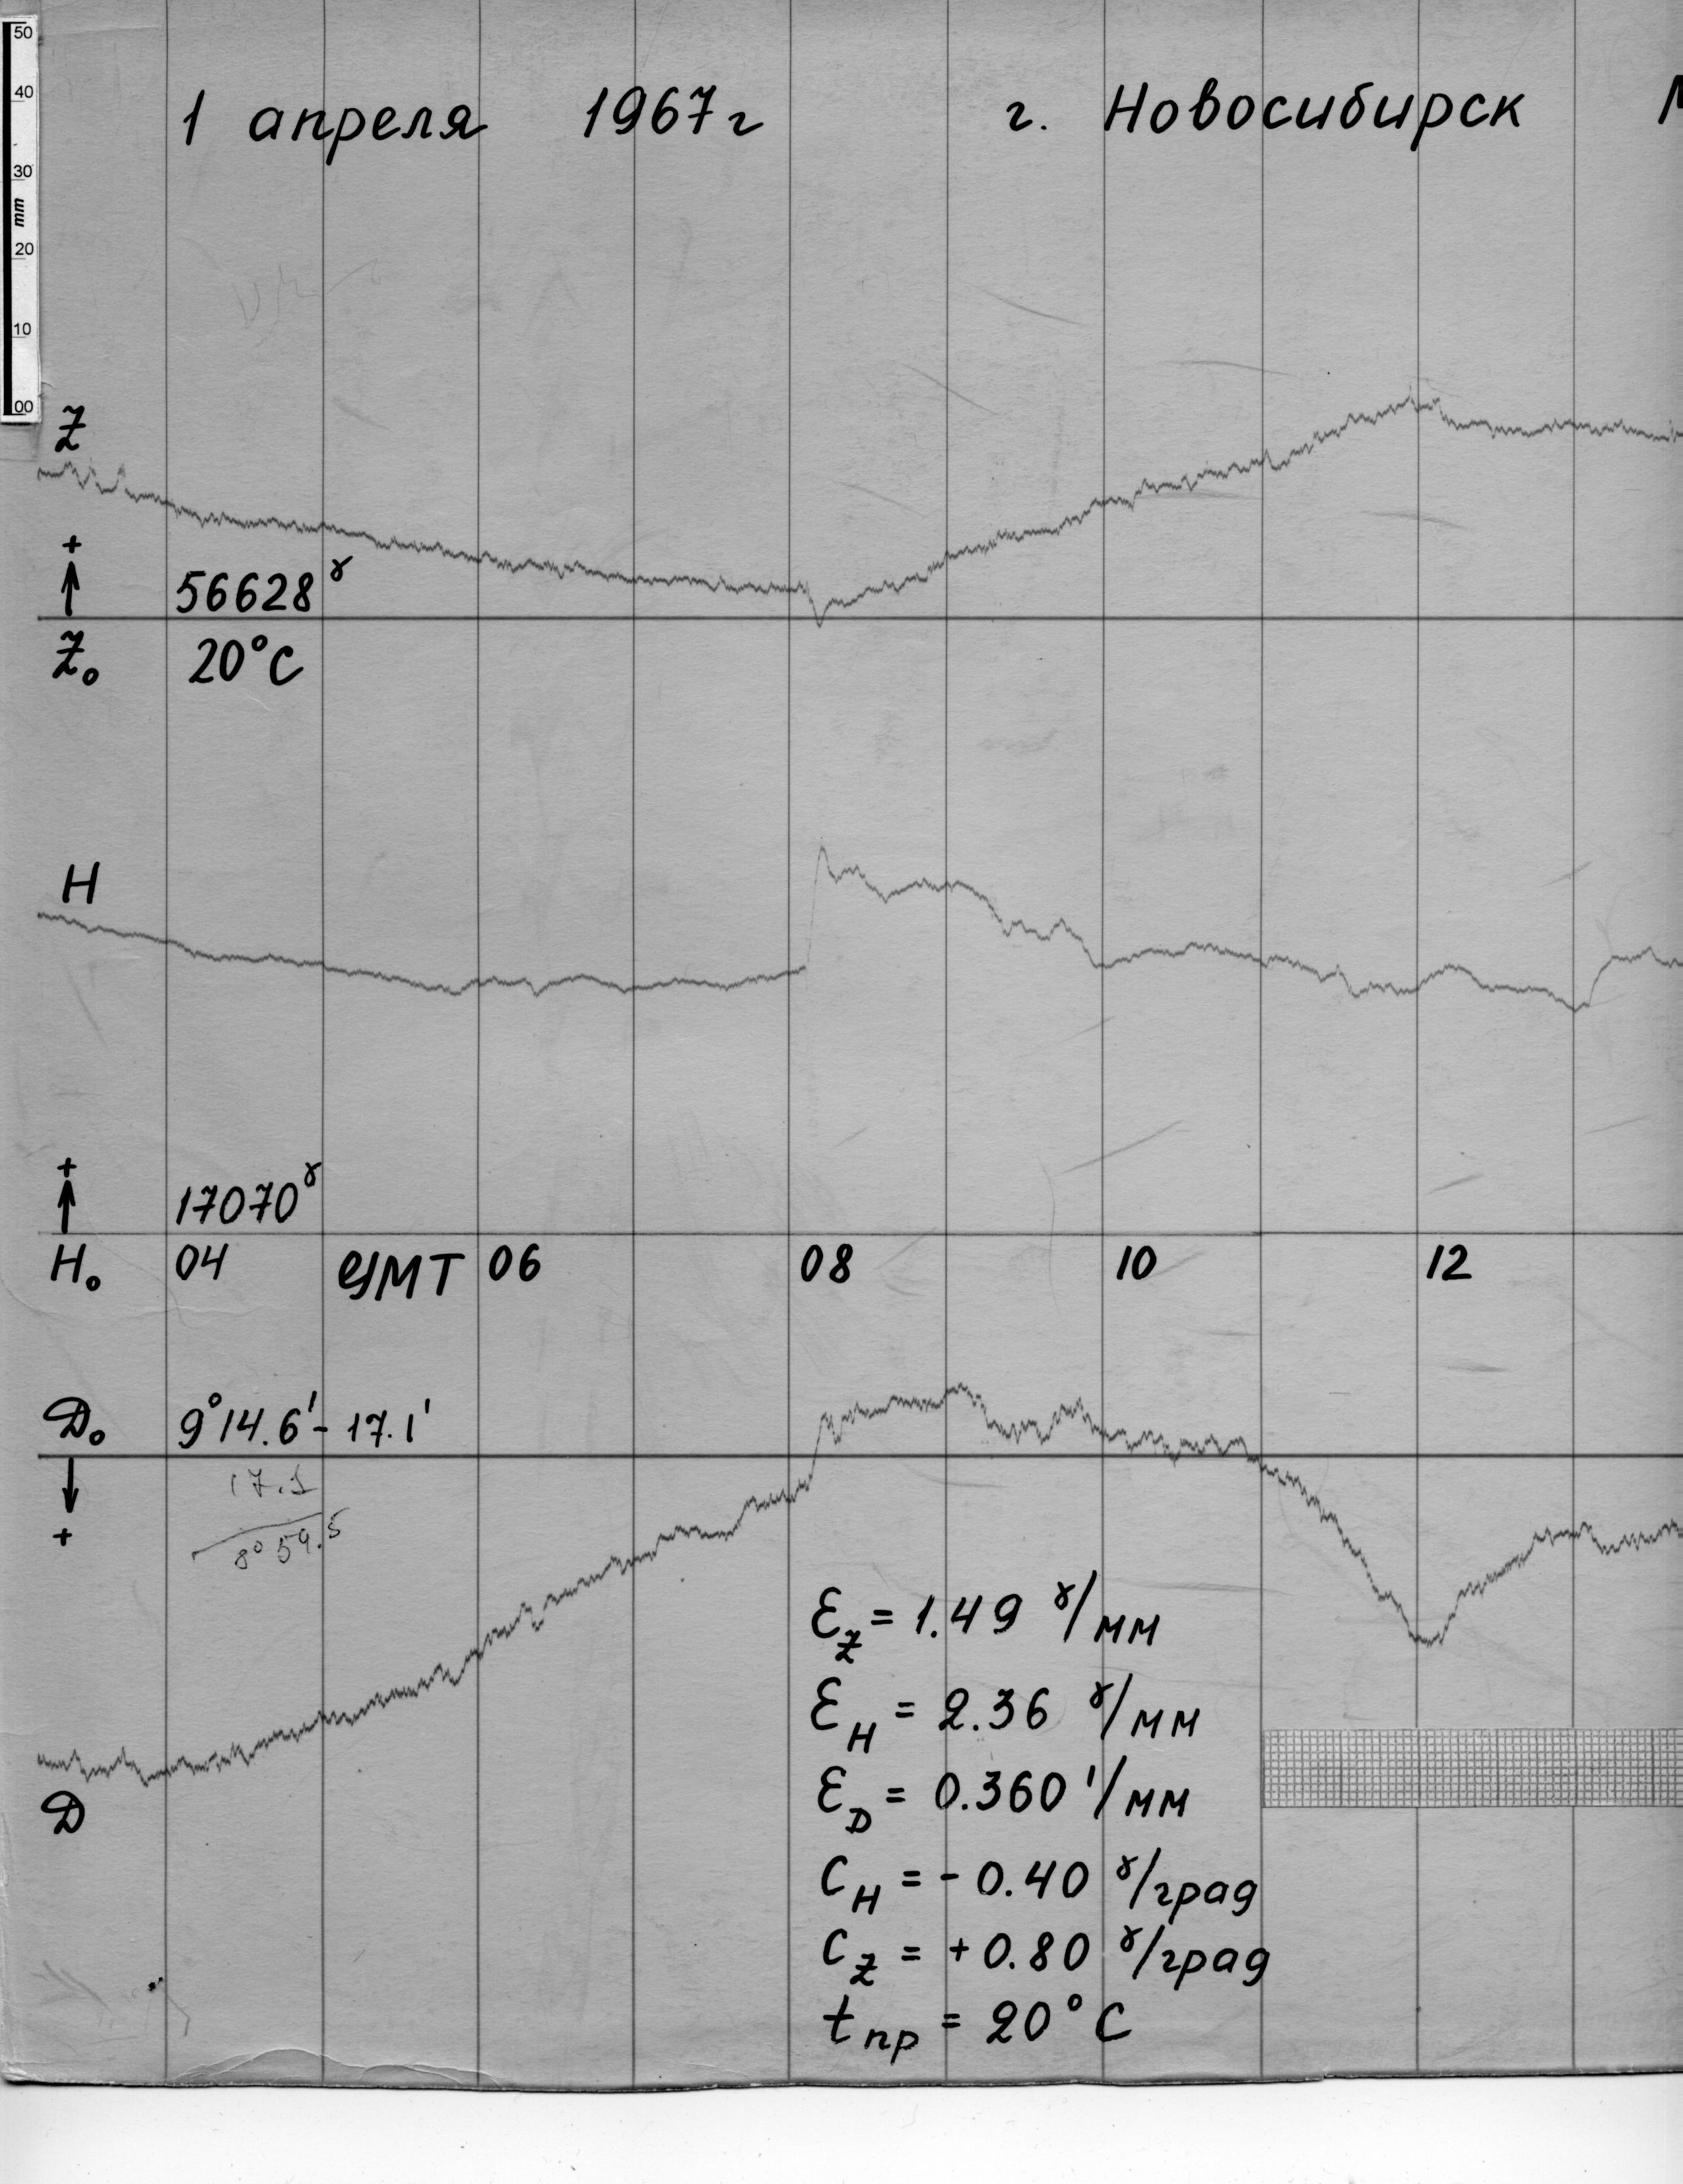 50
40
30
mm
20
10
00
1 апреля 1967г г. Новосибирск
Z
+
56628ˠ
Z₀ 20°C
H
+
17070ˠ
H₀ 04 GMT 06 08 10 12
D₀ 9°14.6' - 17.1'
17.1
+
8°59.5
Ɛ_Z = 1.49 ˠ/мм
Ɛ_H = 2.36 ˠ/мм
Ɛ_D = 0.360 '/мм
D
C_H = - 0.40 ˠ/град
C_Z = + 0.80 ˠ/град
t_пр = 20°C